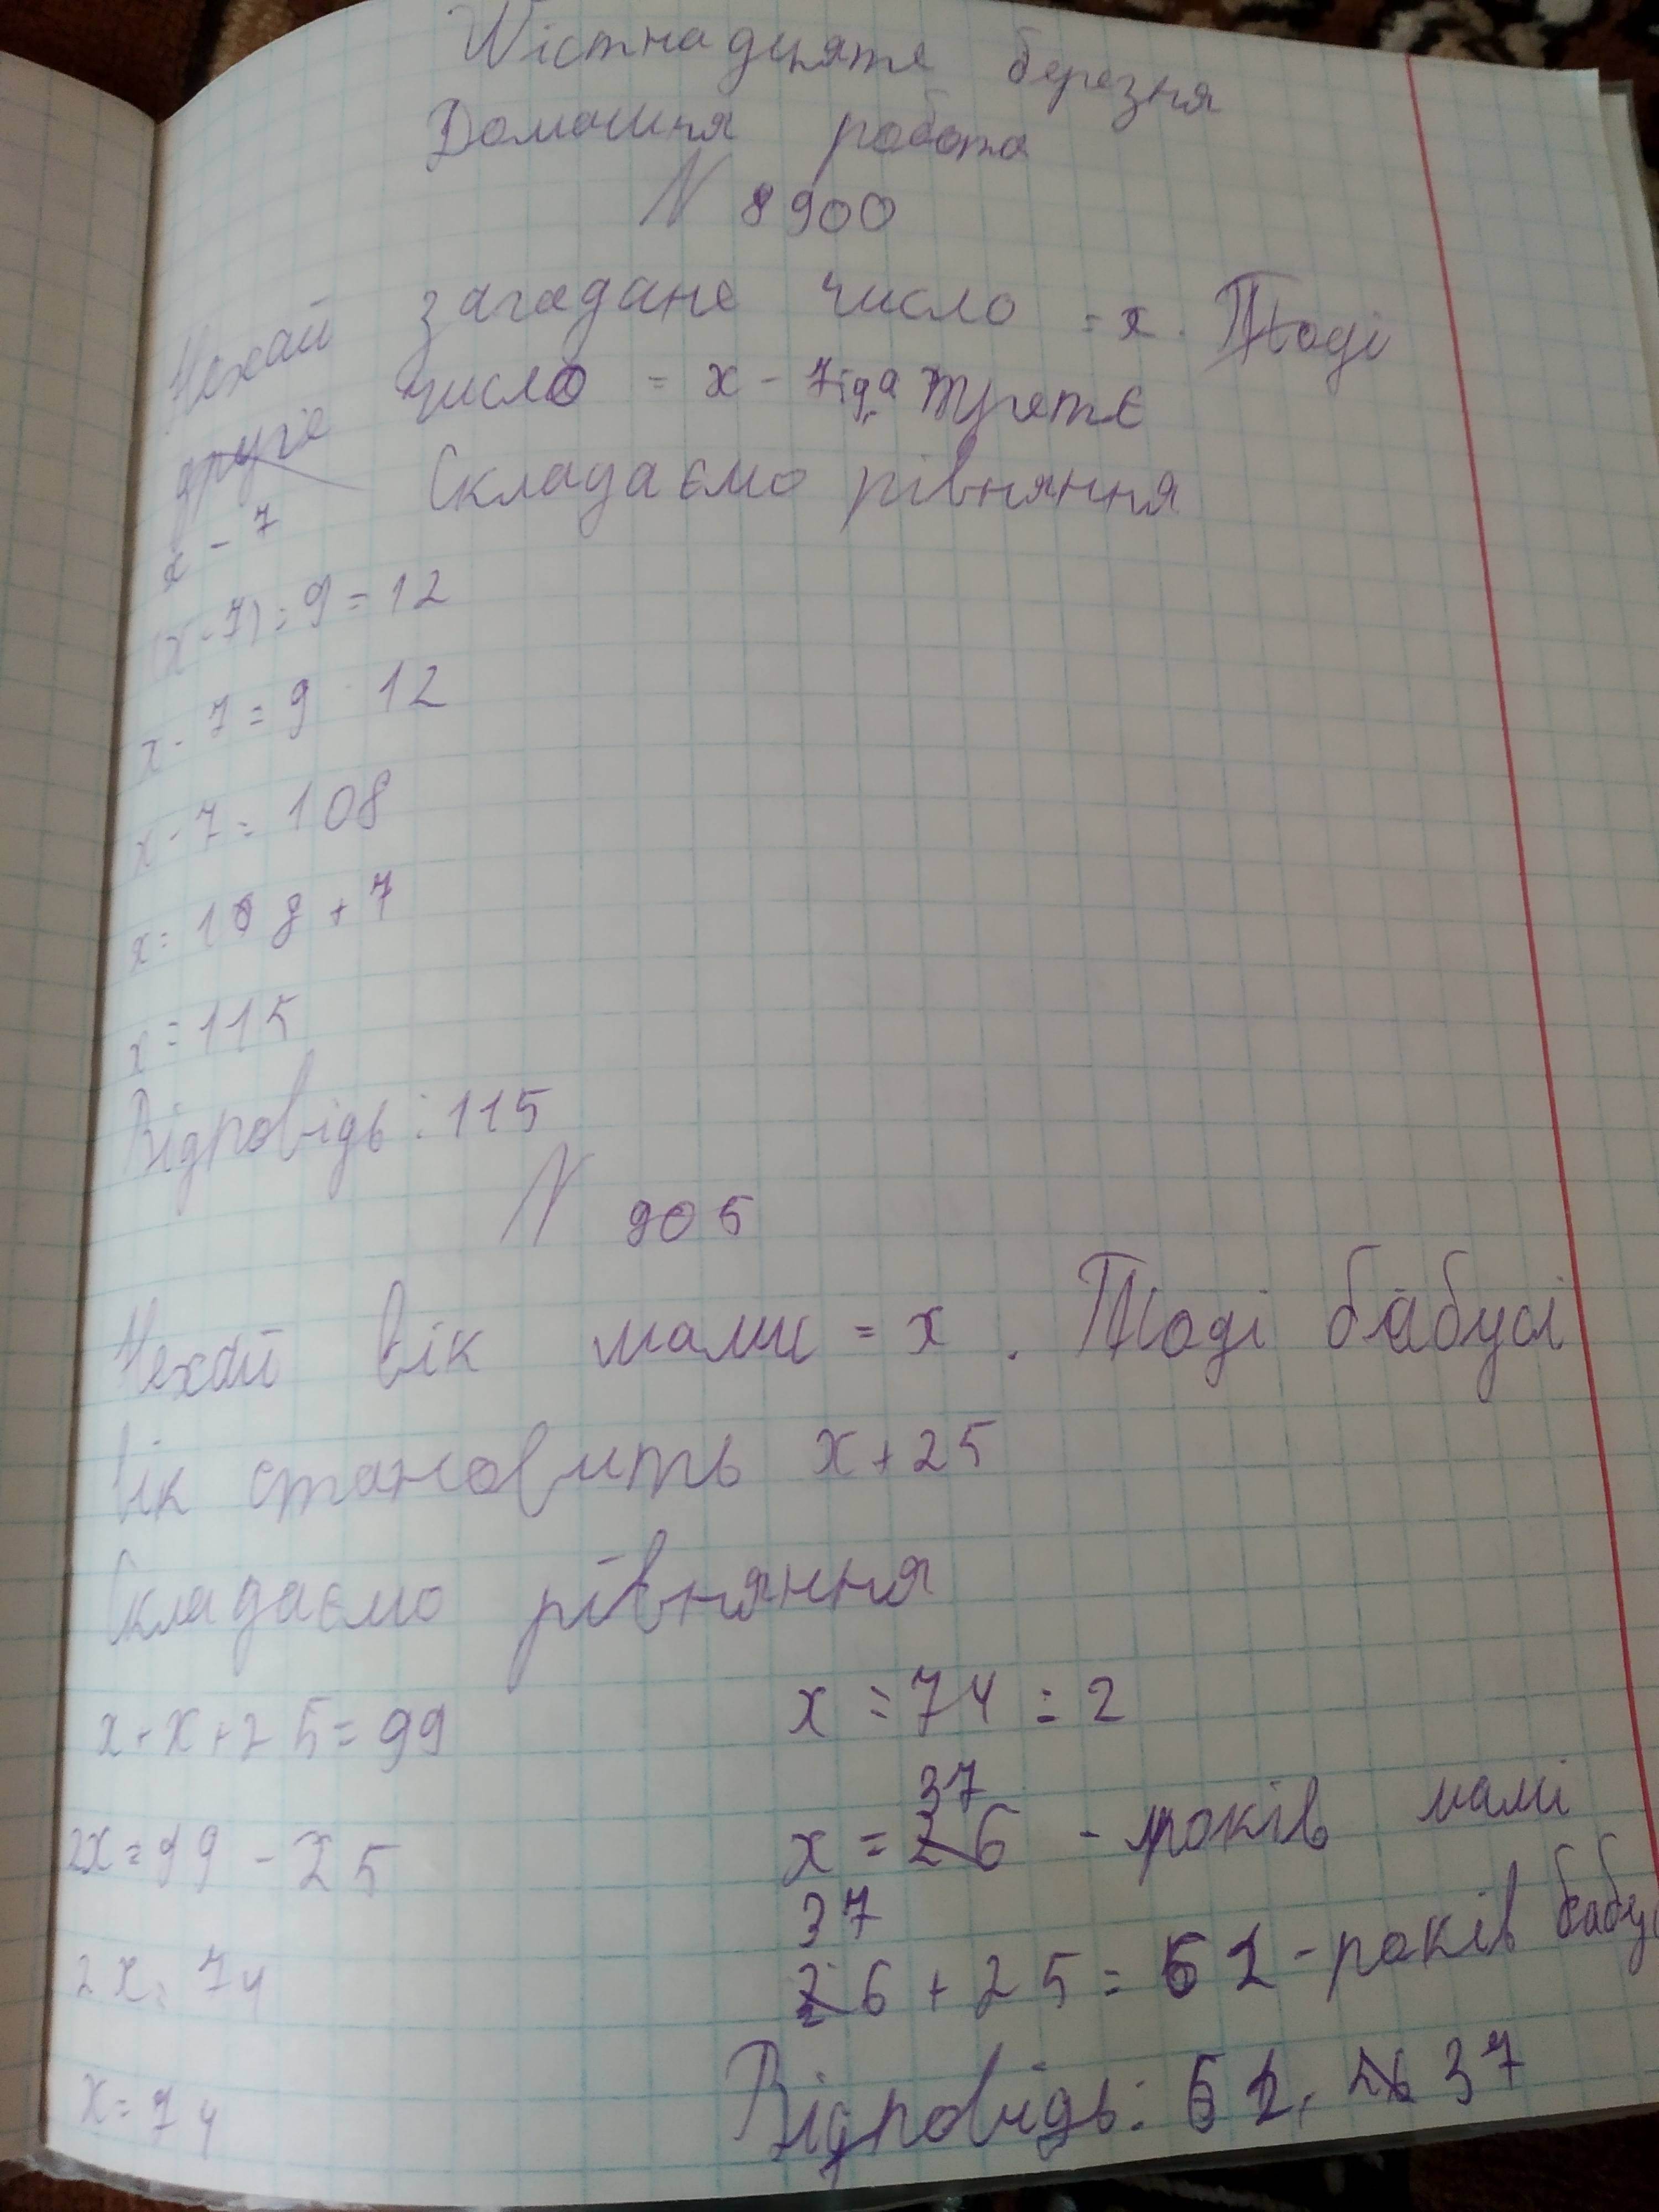 Шістнадцяте березня
Домашня робота
N 8900
Нехай загадане число = x. Тоді
друге число = x - 7 третє
x - 7 Складаємо рівняння
(x - 7) : 9 = 12
x - 7 = 9 · 12
x - 7 = 108
x = 108 + 7
x = 115
Відповідь: 115
N 905
Нехай вік мами = x. Тоді бабусі
вік становить x + 25
Складаємо рівняння
x + x + 25 = 99
2x = 99 - 25
2x = 74
x = 74
x = 74 : 2
37
x = 26 - років мамі
37
26 + 25 = 62 - років бабус
Відповідь: 62, 26 37